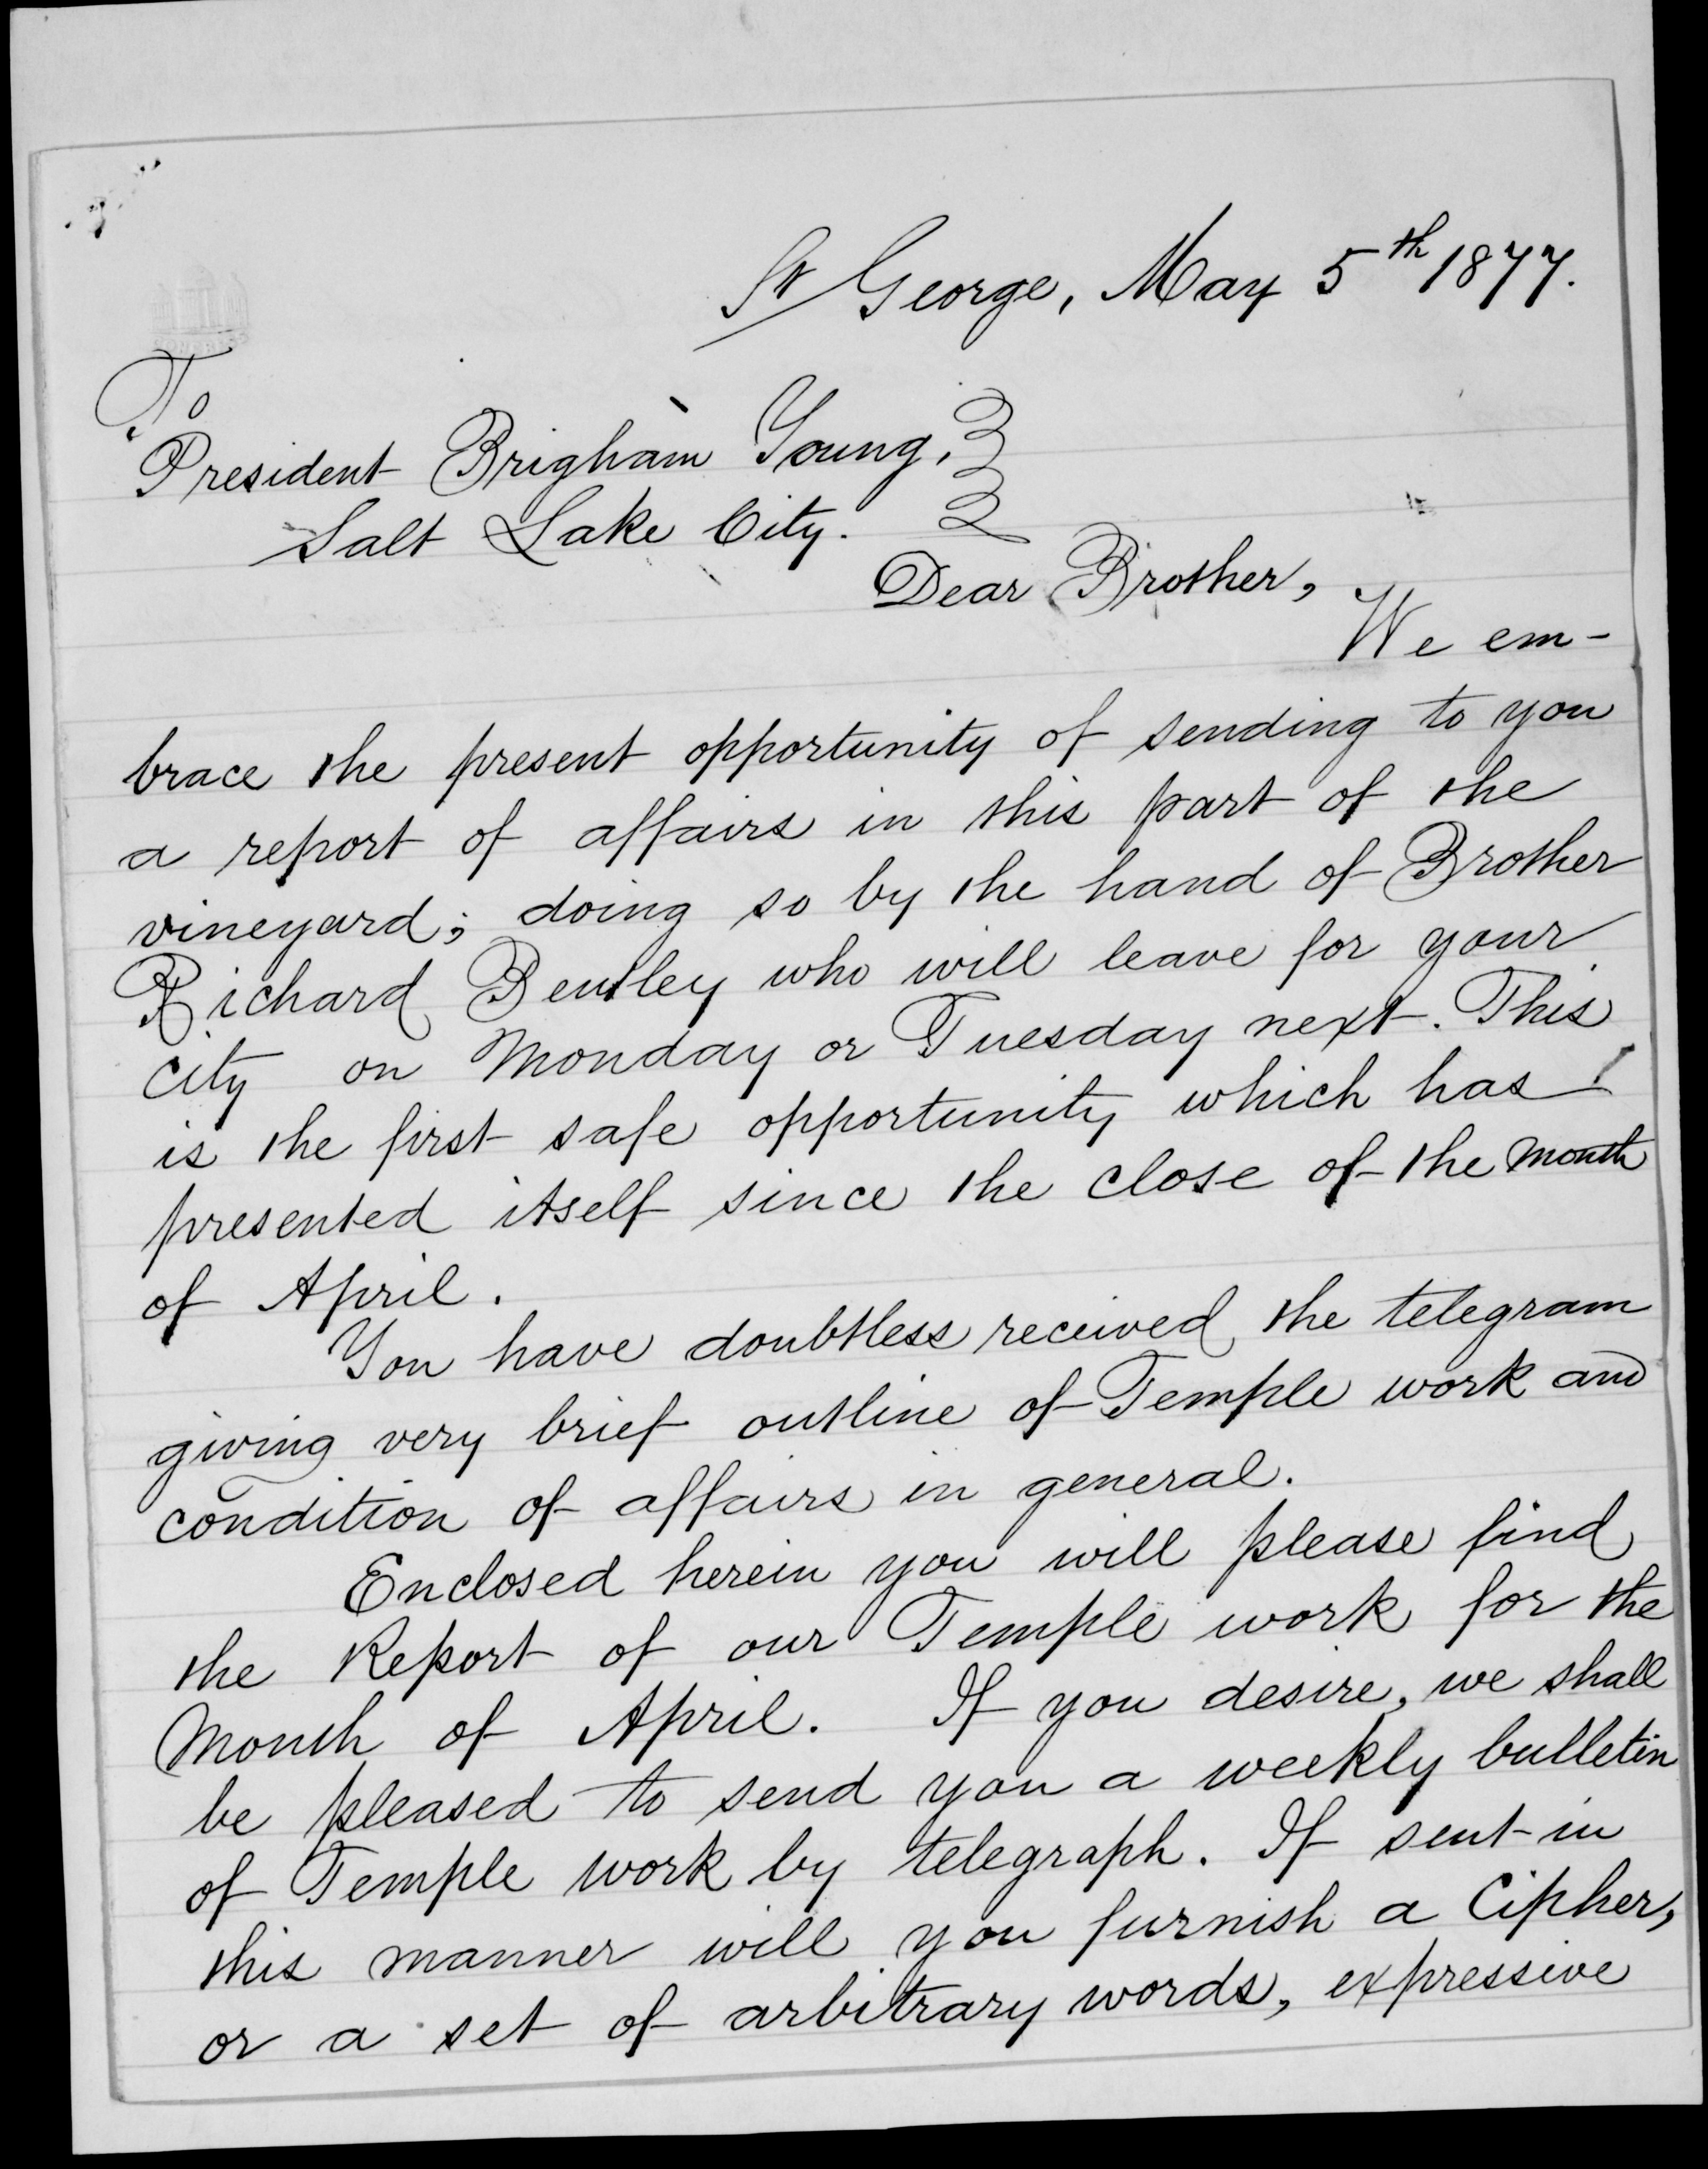 St George, May 5th 1877.
To
President Brigham Young,
Salt Lake City.
Dear Brother,
We em-
brace the present opportunity of sending to you
a report of affairs in this part of the
vineyard; doing so by the hand of Brother
Richard Bentley who will leave for your
city on Monday or Tuesday next. This
is the first safe opportunity which has
presented itself since the close of the month
of April.
You have doubtless received the telegram
giving very brief outline of Temple work and
condition of affairs in general.
Enclosed herein you will please find
the Report of our Temple work for the
Month of April. If you desire, we shall
be pleased to send you a weekly bulletin
of Temple work by telegraph. If sent in
this manner will you furnish a Cipher,
or a set of arbitrary words, expressive